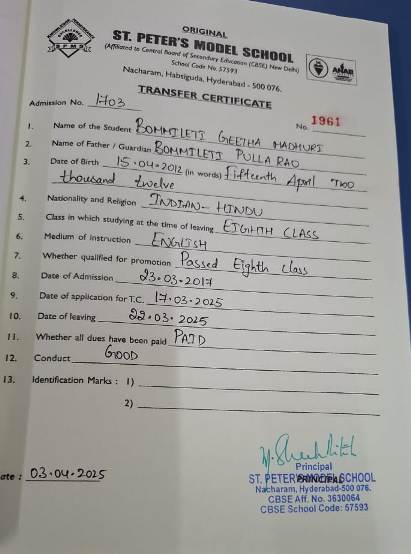 ORIGINAL
ST. PETER'S MODEL SCHOOL
(Affiliated to Central Board of Secondary Education (CBSE) New Delhi)
School Code No. 57593
Nacharam, Habsiguda, Hyderabad - 500 076.
S P M S
TRANSFER CERTIFICATE
Admission No. 1703
No. 1961
1. Name of the Student BOMMILETI GEETHA MADHURI
2. Name of Father / Guardian BOMMILETI PULLA RAO
3. Date of Birth 15.04.2012 (in words) Fifteenth April Two
thousand twelve
4. Nationality and Religion INDIAN - HINDU
5. Class in which studying at the time of leaving EIGHTH CLASS
6. Medium of Instruction ENGLISH
7. Whether qualified for promotion Passed Eighth class
8. Date of Admission 23.03.2017
9. Date of application for T.C. 17.03.2025
10. Date of leaving 22.03.2025
11. Whether all dues have been paid PAID
12. Conduct GOOD
13. Identification Marks : 1)
2)
ate : 03.04.2025
Principal
PRINCIPAL
ST. PETER'S MODEL SCHOOL
Nacharam, Hyderabad-500 076.
CBSE Aff. No. 3630064
CBSE School Code: 57593